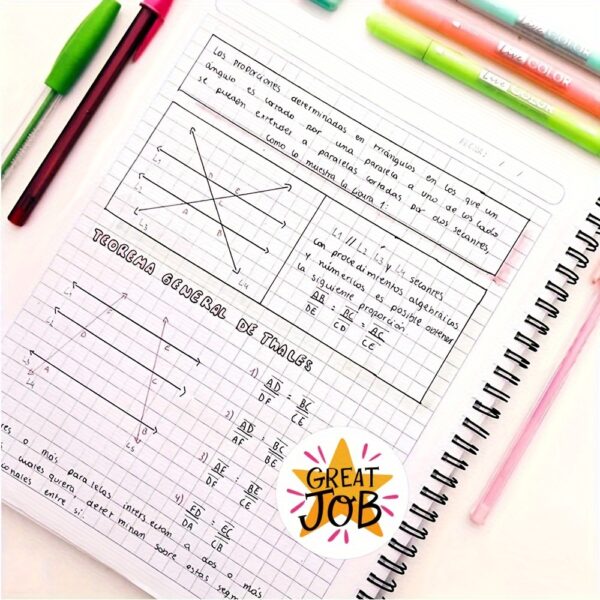 Las proporciones determinadas en triángulos en los que un
ángulo es cortado por una paralela a uno de los lados
se pueden extender a paralelas cortadas por dos secantes,
como lo muestra la figura 1:
FECHA: / /
L1
L2
L3
L4
A
B
D
E
L1 // L2, L3 y L4 secantes
con procedimientos algebráicos
y númericos es posible obtener
la siguiente proporción
AB/DE = BC/CD = AC/CE
TEOREMA GENERAL DE THALES
L1
L2
L3
L4
L5
A
D
E
C
1) AD/DF = BC/CE
2) AD/AF = BC/BE
3) AF/DF = BE/CE
4) FD/DA = EC/CB
res o más paralelas intersectan a dos o más
cuales quiera, determinan sobre estas segm
cionales entre sí.
GREAT
JOB
LiveCOLOR
LiveCOLOR
LiveCOLOR